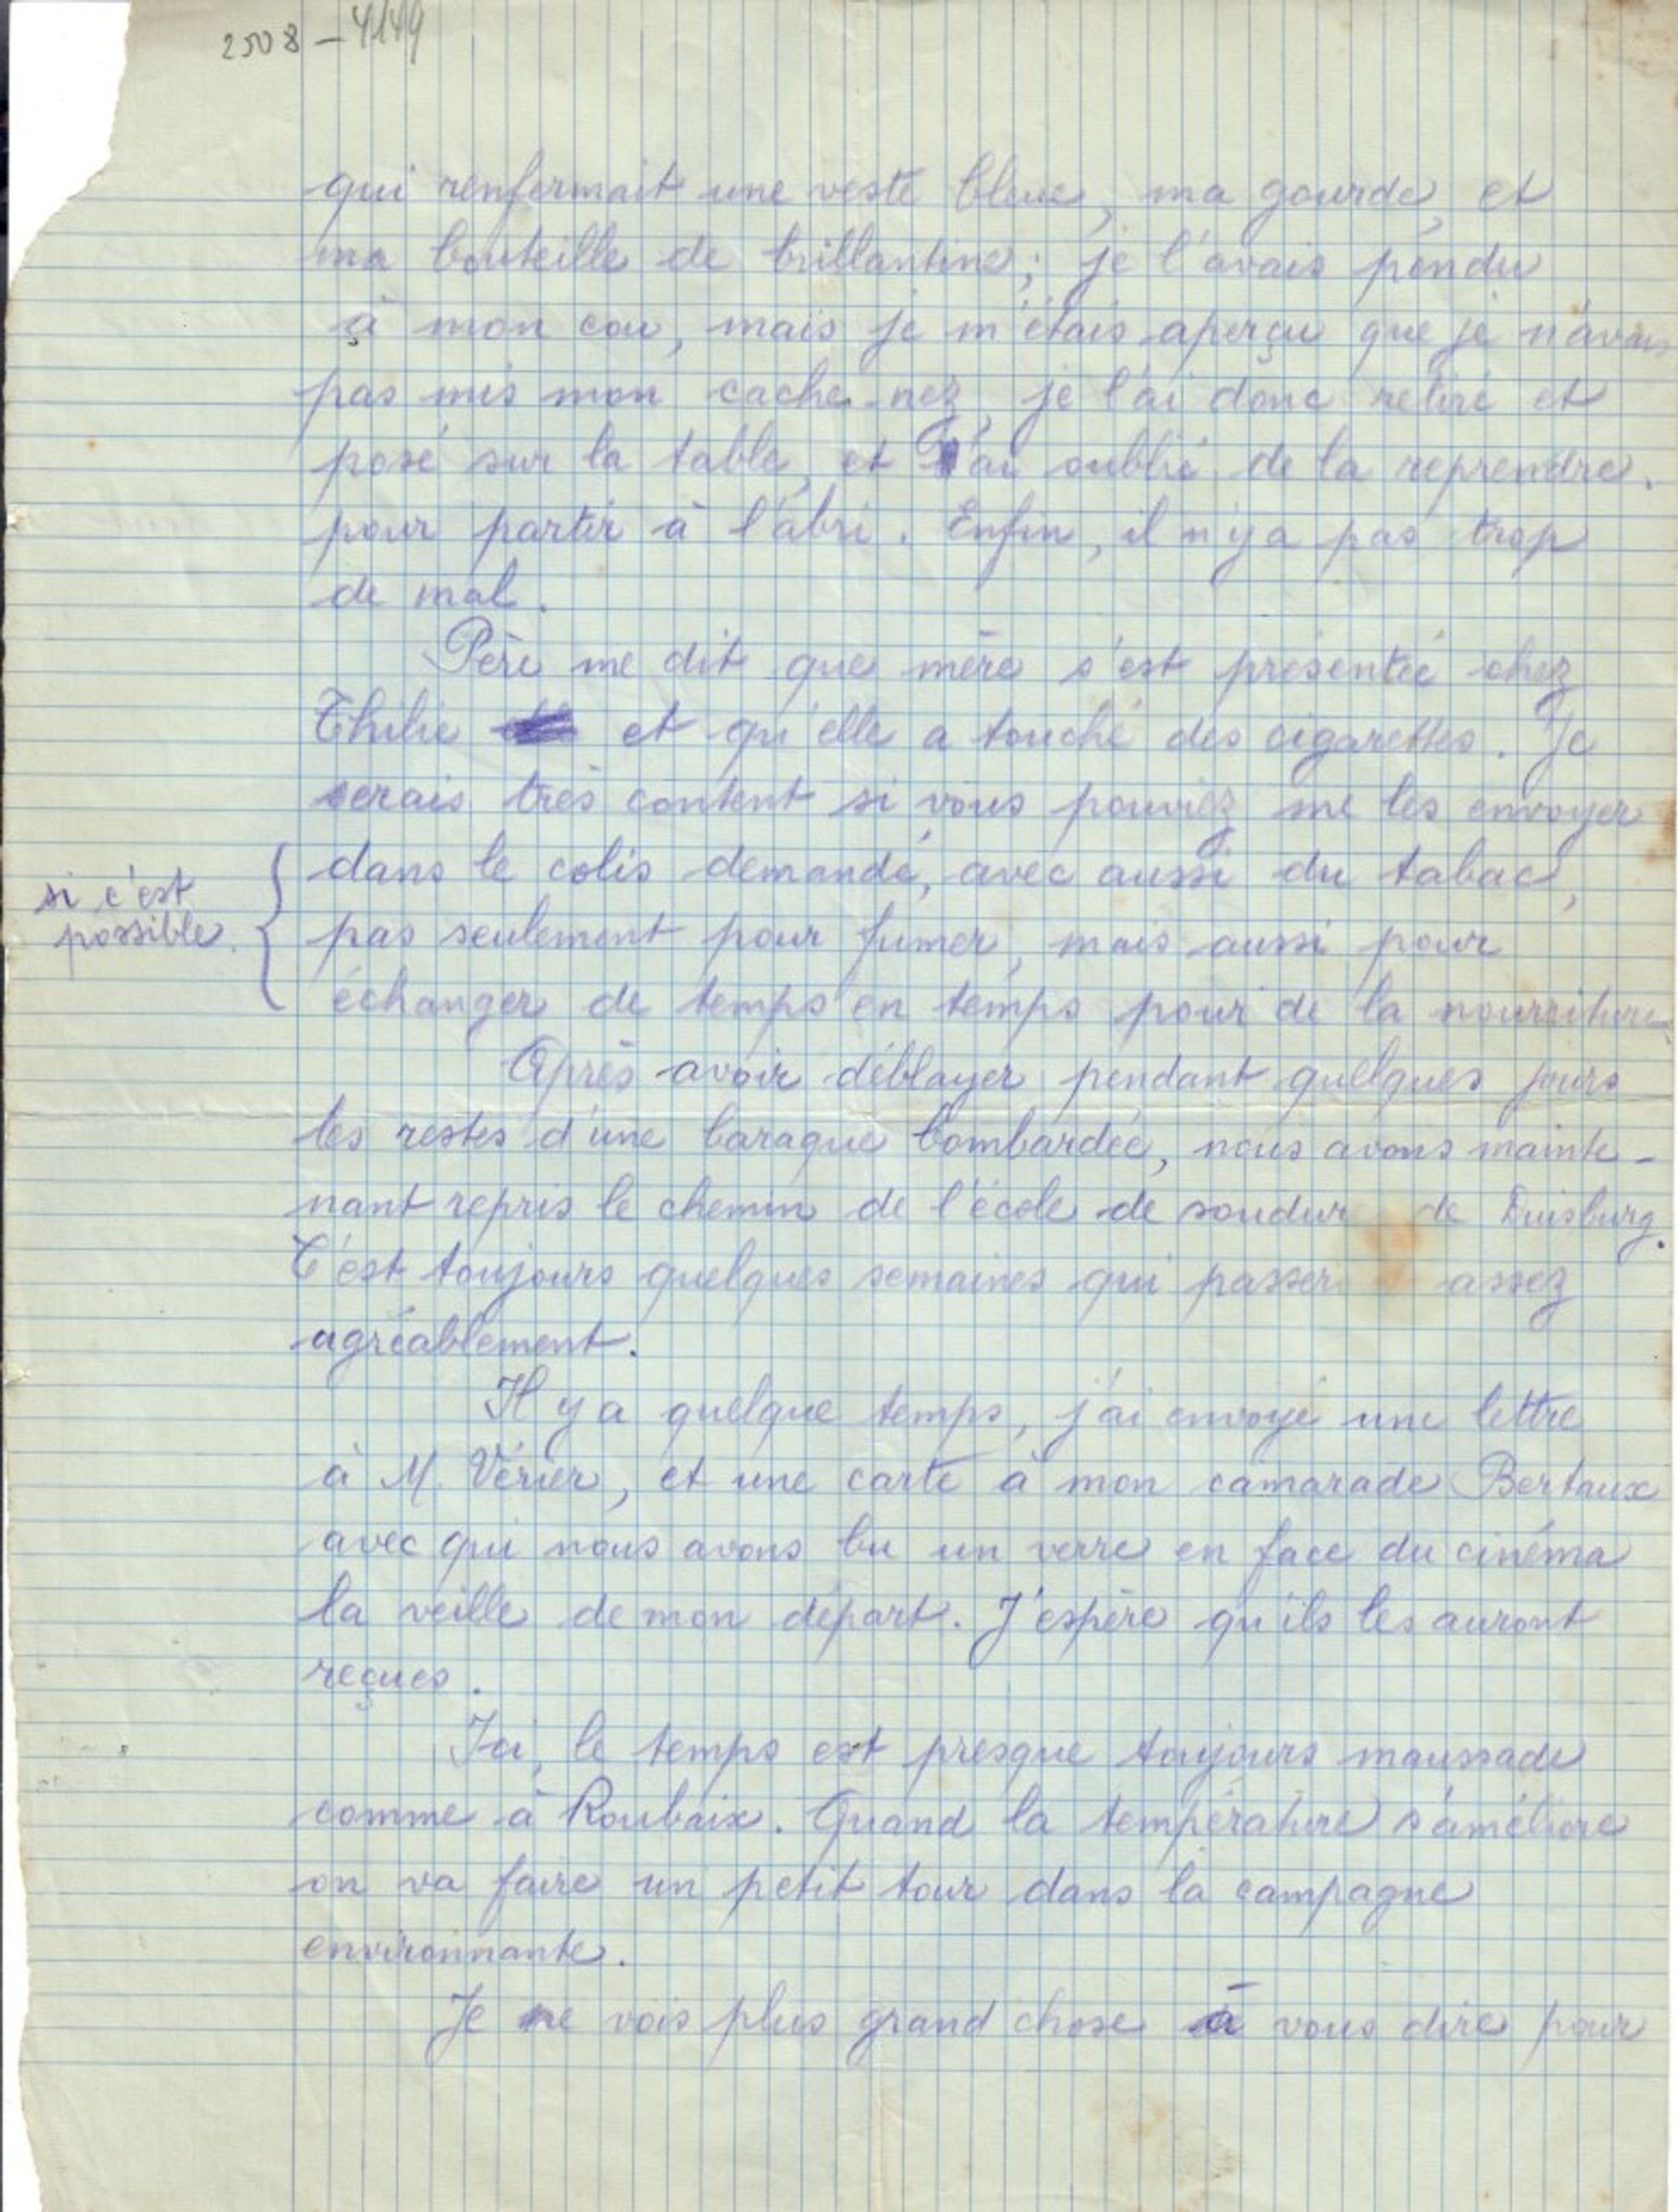 2508 - 4149
qui renfermait une veste bleue, ma gourde, et
ma bouteille de brillantine; je l'avais pendu
à mon cou, mais je m'étais aperçu que je n'avais
pas mis mon cache-nez, je l'ai donc retiré et
posé sur la table, et j'ai oublié de la reprendre.
pour partir à l'abri. Enfin, il n'y a pas trop
de mal.
Père me dit que mère s'est présentée chez
Thilie et qu'elle a touché des cigarettes. Je
serais très content si vous pouviez me les envoyer
dans le colis demandé, avec aussi du tabac,
si c'est
possible.
pas seulement pour fumer, mais aussi pour
échanger de temps en temps pour de la nourriture
Après avoir déblayer pendant quelques jours
les restes d'une baraque bombardée, nous avons mainte-
nant repris le chemin de l'école de soudure de Duisburg.
C'est toujours quelques semaines qui passer assez
agréablement.
Il y a quelque temps, j'ai envoyé une lettre
à M. Vérier, et une carte à mon camarade Bertaux
avec qui nous avons bu un verre en face du cinéma
la veille de mon départ. J'espère qu'ils les auront
reçues.
Ici, le temps est presque toujours maussade
comme à Roubaix. Quand la température s'améliore
on va faire un petit tour dans la campagne
environnante.
Je ne vois plus grand chose à vous dire pour